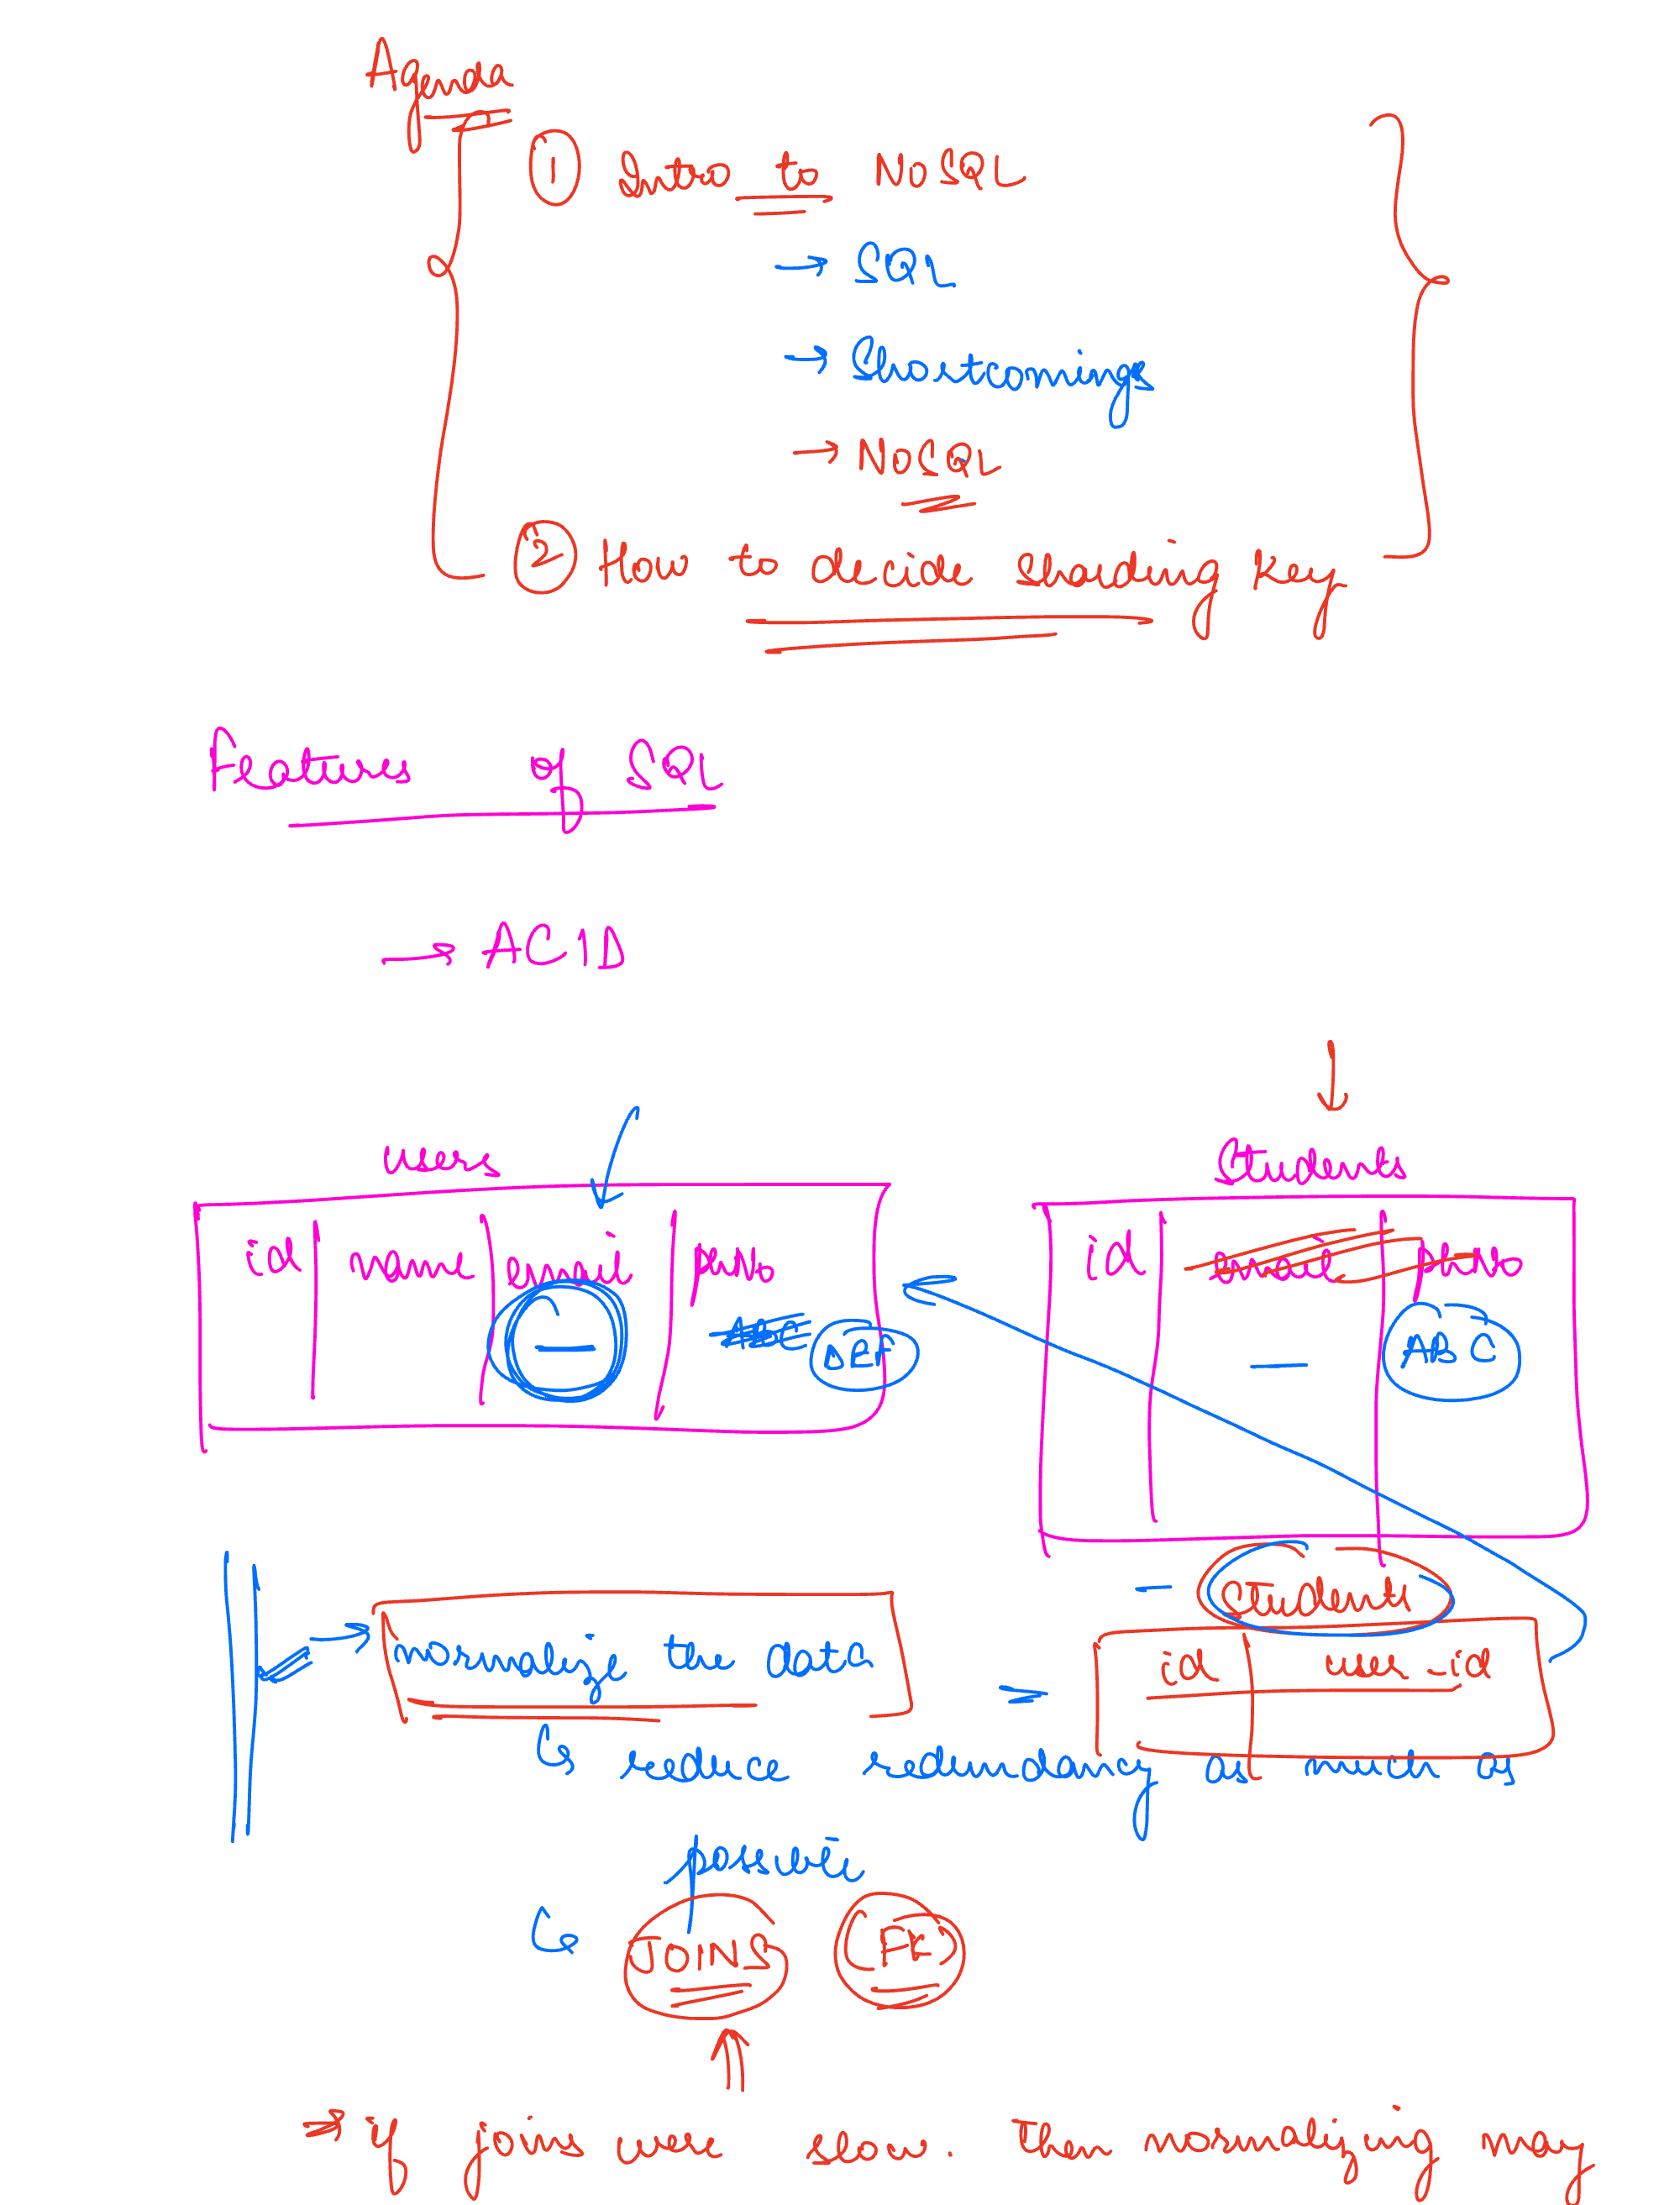 Agenda
① Intro to NoSQL
→ SQL
→ Shortcomings
→ NoSQL
② How to decide sharding key
Features of SQL
→ ACID
users
id name email phNo
ABC DEF
Students
id email phNo
— ABC
→ normalize the data
Students
id user_id
↳ reduce redundancy as much as
possible
↳ JOINS (FK)
⇒ if joins were slow. Then normalizing may